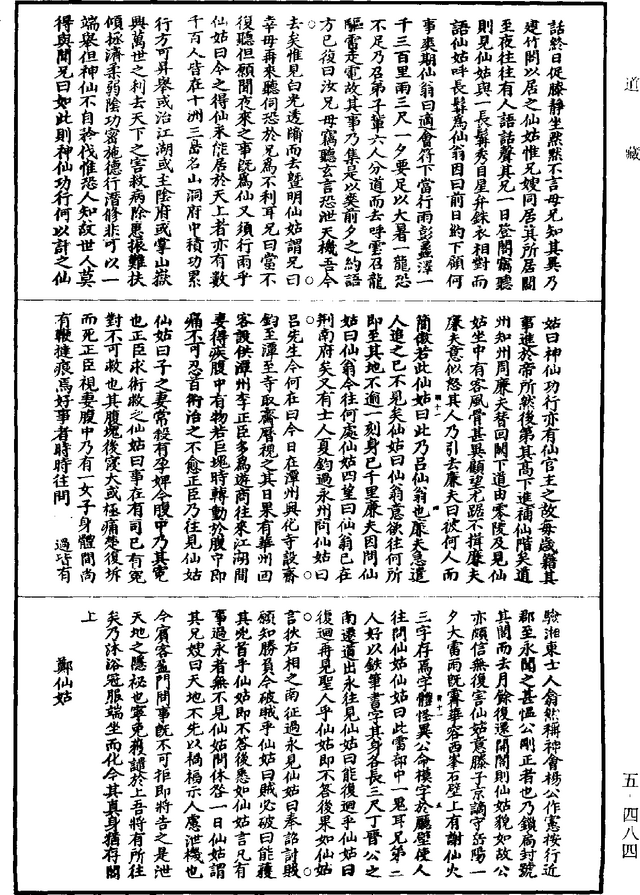 道藏
話終日促膝靜坐默默不言母兄知其異乃
建竹閣以居之仙姑惟兄嫂同居其所居閣
至夜往往有人語話聲其兄一日登閣竊聽
則見仙姑與一長髯秀目星弁銖衣相對而
語仙姑呼長髯為仙翁因曰前日約下顧何
事爽期仙翁曰適會符下當行雨彭蠡澤一
千三百里雨三尺一夕要足以大暑一龍恐
不足乃召弟子輩六人分道而去呼雲召龍
驅雷走電故其事乃集是以爽前夕之約語
方已復曰汝兄毋竊聽玄言恐泄天機吾今
去矣惟見白光透牖而去曁明仙姑謂兄曰
幸毋再來聽伺恐於兄為不利耳兄曰當不
復聽但願聞夜來之事旣為仙又須行雨乎
仙姑曰今之得仙未能居於天上者亦有數
千百人皆在十洲三島名山洞府中積功累
行方可昇舉或治江湖或主陰府或掌山嶽
興萬世之利去天下之害救病除患振難扶
傾拯濟柔弱陰功密施德行潛修非可以一
端舉但神仙不自矜伐惟恐人知故世人莫
得與聞兄曰如此則神仙功行何以計之仙
姑曰神仙功行亦有仙官主之故每歲籍其
事進於帝所然後第其高下進補仙階矣道
州知州周廉夫替回闕下道由零陵及見仙
姑坐中有客風骨甚異顧望尤踞不揖廉夫
廉夫意似怒其人乃引去廉夫曰彼何人而
簡傲若此仙姑曰此乃呂仙翁也廉夫急遣
人追之已不見矣仙姑曰仙翁意欲往何所
即至其地不逾一刻身已千里廉夫因問仙
姑曰仙翁今往何處仙姑四望曰仙翁已在
荆南府矣又有士人夏鈞過永州問仙姑曰
呂先生今何在曰今日在潭州興化寺設齋
鈞至潭至寺取齋曆視之其日果有華州回
客設供潭州李正臣多為遊商往來江湖間
妻得疾腹中有物若巨塊時轉動於腹中即
痛不可忍百術治之不愈正臣乃往見仙姑
仙姑曰子之妻常殺有孕婢今腹中乃其寃
也正臣求術救之仙姑曰事在有司已有寃
對不可救也其腹塊後寖大或極痛楚復坼
而死正臣視妻腹中乃有一女子身體間尚
有鞭撻痕焉好事者時時往問過皆有
驗湘東士人翁然稱神會楊公作憲按行近
郡至永聞之甚慍公剛正者也乃鎖扃封號
其閣而去月餘復還開閣則仙姑貌如故公
亦頗信無復害仙姑意滕子京謫守岳陽一
夕大雷雨旣霽華容西峯石壁上有謝仙火
三字存焉字體怪異公命模字於廳壁復人
往問仙姑仙姑曰此雷部中一鬼耳兄弟二
人好以鉄筆書字其身各長三尺丁晉公之
南遷道出永往見仙姑曰能復迴乎仙姑曰
復迴再見聖人乎仙姑即不答後果如仙姑
言狄右相之南征過永見仙姑曰奉詔討賊
願知勝負今破賊乎仙姑曰賊必破曰能獲
其兇首乎仙姑即不答後悉如仙姑言凡有
事過永者無不見仙姑問休咎一日仙姑謂
其兄嫂曰天地不先以禍福示人慮泄機也
今賓客盈門問事旣不可拒即將告之是泄
天地之隱秘也寧免獲譴於上吾將有所往
矣乃沐浴冠服端坐而化今其真身猶存閣
上
鄭仙姑
五‧四八四